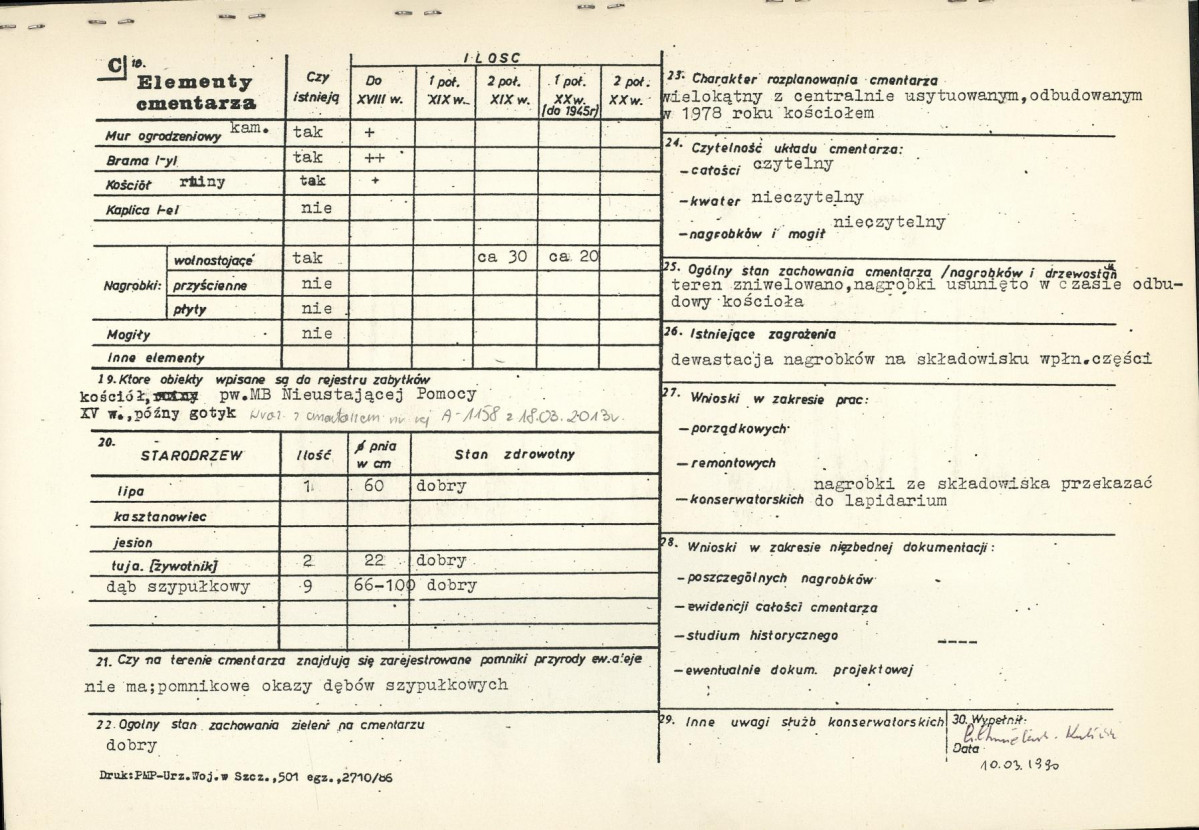 C 18.
Elementy cmentarza
Czy istnieją
ILOSC
Do XVIII w.
1 poł. XIX w.
2 poł. XIX w.
1 poł. XX w. (do 1945r)
2 poł. XX w.
Mur ogrodzeniowy kam. tak +
Brama /-y/ tak ++
Kościół ruiny tak +
Kaplica /-e/ nie
Nagrobki:
wolnostojące tak ca 30 ca 20
przyścienne nie
płyty nie
Mogiły nie
Inne elementy
19. Ktore obiekty wpisane są do rejestru zabytków
kościół, pw.MB Nieustającej Pomocy
XV w.,późny gotyk wraz z cmentarzem nr rej A-1158 z 18.03.2013r.
20.
STARODRZEW Ilość ø pnia w cm Stan zdrowotny
lipa 1 60 dobry
kasztanowiec
jesion
tuja. [żywotnik] 2 22 dobry
dąb szypułkowy 9 66-100 dobry
21. Czy na terenie cmentarza znajdują się zarejestrowane pomniki przyrody ew. aleje
nie ma;pomnikowe okazy dębów szypułkowych
22. Ogolny stan zachowania zieleni na cmentarzu
dobry
Druk:PMP-Urz.Woj.w Szcz.,501 egz.,2710/86
23. Charakter rozplanowania cmentarza
wielokątny z centralnie usytuowanym,odbudowanym
w 1978 roku kościołem
24. Czytelność układu cmentarza:
-całości czytelny
-kwater nieczytelny
-nagrobków i mogił nieczytelny
25. Ogólny stan zachowania cmentarza /nagrobków i drzewostanu
teren zniwelowano,nagrobki usunięto w czasie odbu-
dowy kościoła
26. Istniejące zagrożenia
dewastacja nagrobków na składowisku wpłn.części
27. Wnioski w zakresie prac:
-porządkowych
-remontowych
nagrobki ze składowiska przekazać
-konserwatorskich do lapidarium
28. Wnioski w zakresie niezbednej dokumentacji:
-poszczególnych nagrobków
-ewidencji całości cmentarza
-studium historycznego ----
-ewentualnie dokum. projektowej
29. Inne uwagi służb konserwatorskich
30. Wypełnił:
Data
10.03.1990